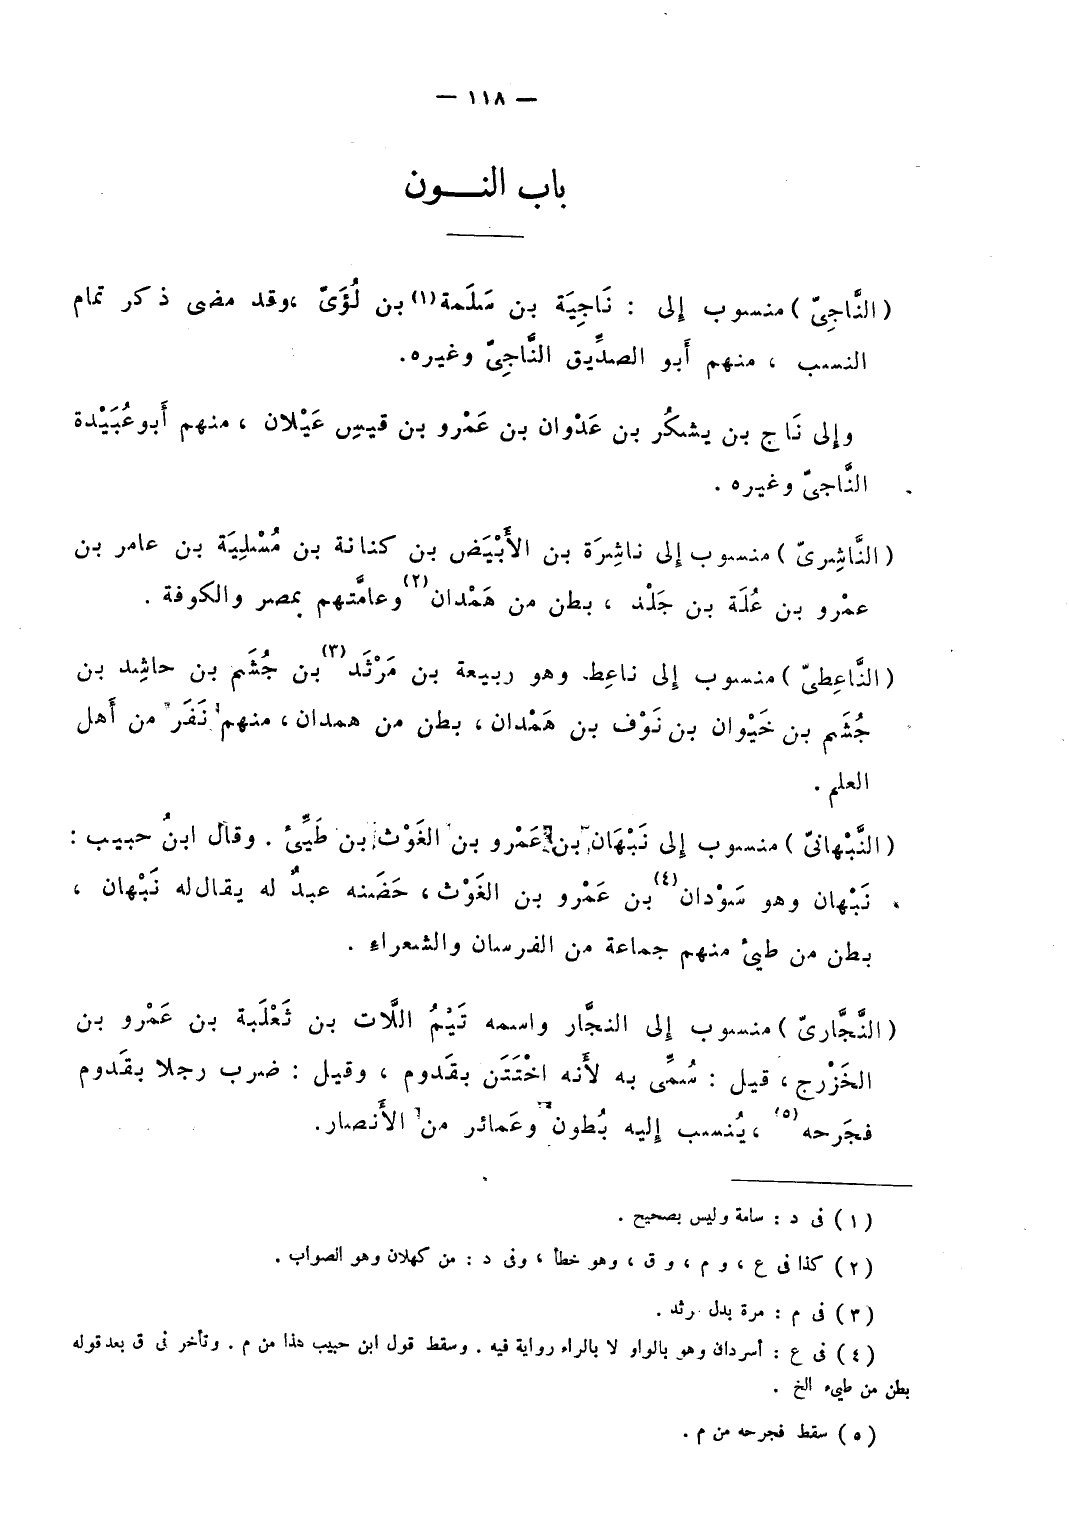 — ١١٨ —
باب النــون
( النَّاجِىّ ) منسوب إلى : نَاجِيَة بن سَلَمة(١) بن لُؤَىّ ،وقد مضى ذكر تمام
النسب ، منهم أَبو الصدِّيق النَّاجِىّ وغيره.
وإلى نَاج بن يشكُر بن عَدْوان بن عَمْرو بن قيسِ عَيْلان ، منهم أَبوعُبَيْدة
النَّاجىّ وغيره .
( النَّاشِرىّ ) منسوب إلى ناشِرَة بن الأَبْيَض بن كنانة بن مُسْلِيَة بن عامر بن
عمْرو بن عُلَة بن جَلْد ، بطن من هَمْدان(٢) وعامَّتهم بمصر والكوفة .
( النَّاعِطىّ ) منسوب إلى ناعِط. وهو ربيعة بن مَرْثَد(٣) بن جُشَم بن حاشِد بن
جُشَم بن خَيْوان بن نَوْف بن هَمْدان ، بطن من همدان ، منهم نَفَر من أَهل
العلم .
( النَّبْهانىّ ) منسوب إلى نَبْهَان بن عَمْرو بن الغَوْث بن طَيِّئ . وقال ابنُ حبيب :
نَبْهان وهو سَوْدان(٤) بن عَمْرو بن الغَوْث ، حَضَنه عبدٌ له يقال له نَبْهان ،
بطن من طيئ منهم جماعة من الفرسان والشعراءِ .
( النَّجَّارىّ ) منسوب إلى النجَّار واسمه تَيْمُ اللَّات بن ثَعْلَبة بن عَمْرو بن
الخَزْرج ، قيل : سُمِّى به لأَنه اخْتَتَن بقَدوم ، وقيل : ضرب رجلا بقَدوم
فجَرحه(٥) ، يُنسب إليه بُطون وعَمائر من الأَنصار.
( ١ ) فى د : سامة وليس بصحيح .
( ٢ ) كذا فى ع ، و م ، و ق ، وهو خطأ ، وفى د : من كهلان وهو الصواب .
( ٣ ) فى م : مرة بدل رثد .
( ٤ ) فى ع : أسردان وهو بالواو لا بالراء رواية فيه . وسقط قول ابن حبيب هذا من م . وتأخر فى ق بعد قوله
بطن من طيىء الخ .
( ٥ ) سقط فجرحه من م .